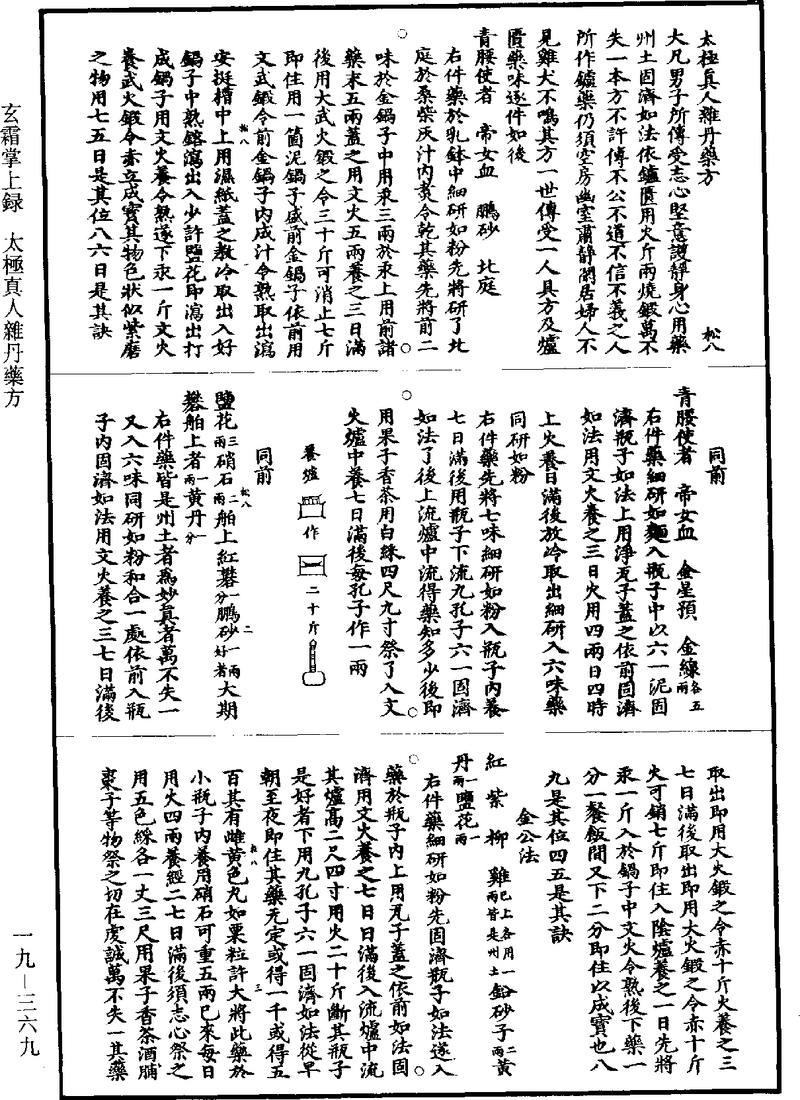 太極真人雜丹藥方
松八
大凡男子所傳受志心堅意謹靜身心用藥
州土固濟如法依鑪匱用火斤兩燒鍛萬不
失一本方不許傳不公不道不信不義之人
所作鑪藥仍須空房幽室肅靜閑居婦人不
見雞犬不鳴其方一世傳受一人具方及爐
匱藥味逐件如後
青腰使者 帝女血 鵬砂 北庭
右件藥於乳鉢中細研如粉先將研了北
庭於桑柴灰汁內煮令乾其藥先將前二
味於金鍋子中用汞三兩於汞上用前諸
藥末五兩蓋之用文火五兩養之三日滿
後用大武火鍛之令三十斤可消上七斤
即住用一箇泥鍋子盛前金鍋子依前用
文武鍛令前金鍋子內成汁令熟取出瀉
安挺槽中上用濕紙蓋之教冷取出入好
鍋子中熟鎔瀉出入少許鹽花即瀉出打
成鍋子用文火養令熟遂下汞一斤文火
養武火鍛令赤立成寶其物色狀似紫磨
之物用七五日是其位八六日是其訣
同前
青腰使者 帝女血 金星預 金線各五兩
右件藥細研如麵入瓶子中以六一泥固
濟瓶子如法上用淨瓦子蓋之依前固濟
如法用文火養之三日火用四兩日四時
上火養日滿後放冷取出細研入六味藥
同研如粉
右件藥先將七味細研如粉入瓶子內養
七日滿後用瓶子下流九孔子六一固濟
如法了後上流爐中流得藥知多少後即
用果子香茶用白絲四尺九寸祭了入文
火爐中養七日滿後每孔子作一兩
養爐 作 二十斤
同前
鹽花三兩硝石二兩舶上紅礬一分鵬砂一兩好者大期
礬舶上者一兩黃丹一分
右件藥皆是州土者為妙真者萬不失一
又入六味同研如粉和合一處依前入瓶
子內固濟如法用文火養之三七日滿後
取出即用大火鍛之令赤十斤火養之三
七日滿後取出即用大火鍛之令赤十斤
火可銷七斤即住入陰爐養之一日先將
汞一斤入於鍋子中文火令熟後下藥一
分一餐飯間又下二分即住以成寶也八
九是其位四五是其訣
金公法
紅 紫 柳 雞已上各用一兩皆是州土鉛砂子二兩黃
丹一兩鹽花一兩
右件藥細研如粉先固濟瓶子如法遂入
藥於瓶子內上用瓦子蓋之依前如法固
濟用文火養之七日日滿後入流爐中流
其爐高二尺四寸用火二十斤斷其瓶子
是好者下用九孔子六一固濟如法從早
朝至夜即住其藥无定或得一千或得五
百其有雌黃色丸如粟粒許大將此藥於
小瓶子內養用硝石可重五兩已來每日
用火四兩養經二七日滿後須志心祭之
用五色綵各一丈三尺用果子香茶酒脯
棗子等物祭之切在虔誠萬不失一其藥
玄霜掌上録 太極真人雜丹藥方
一九－三六九